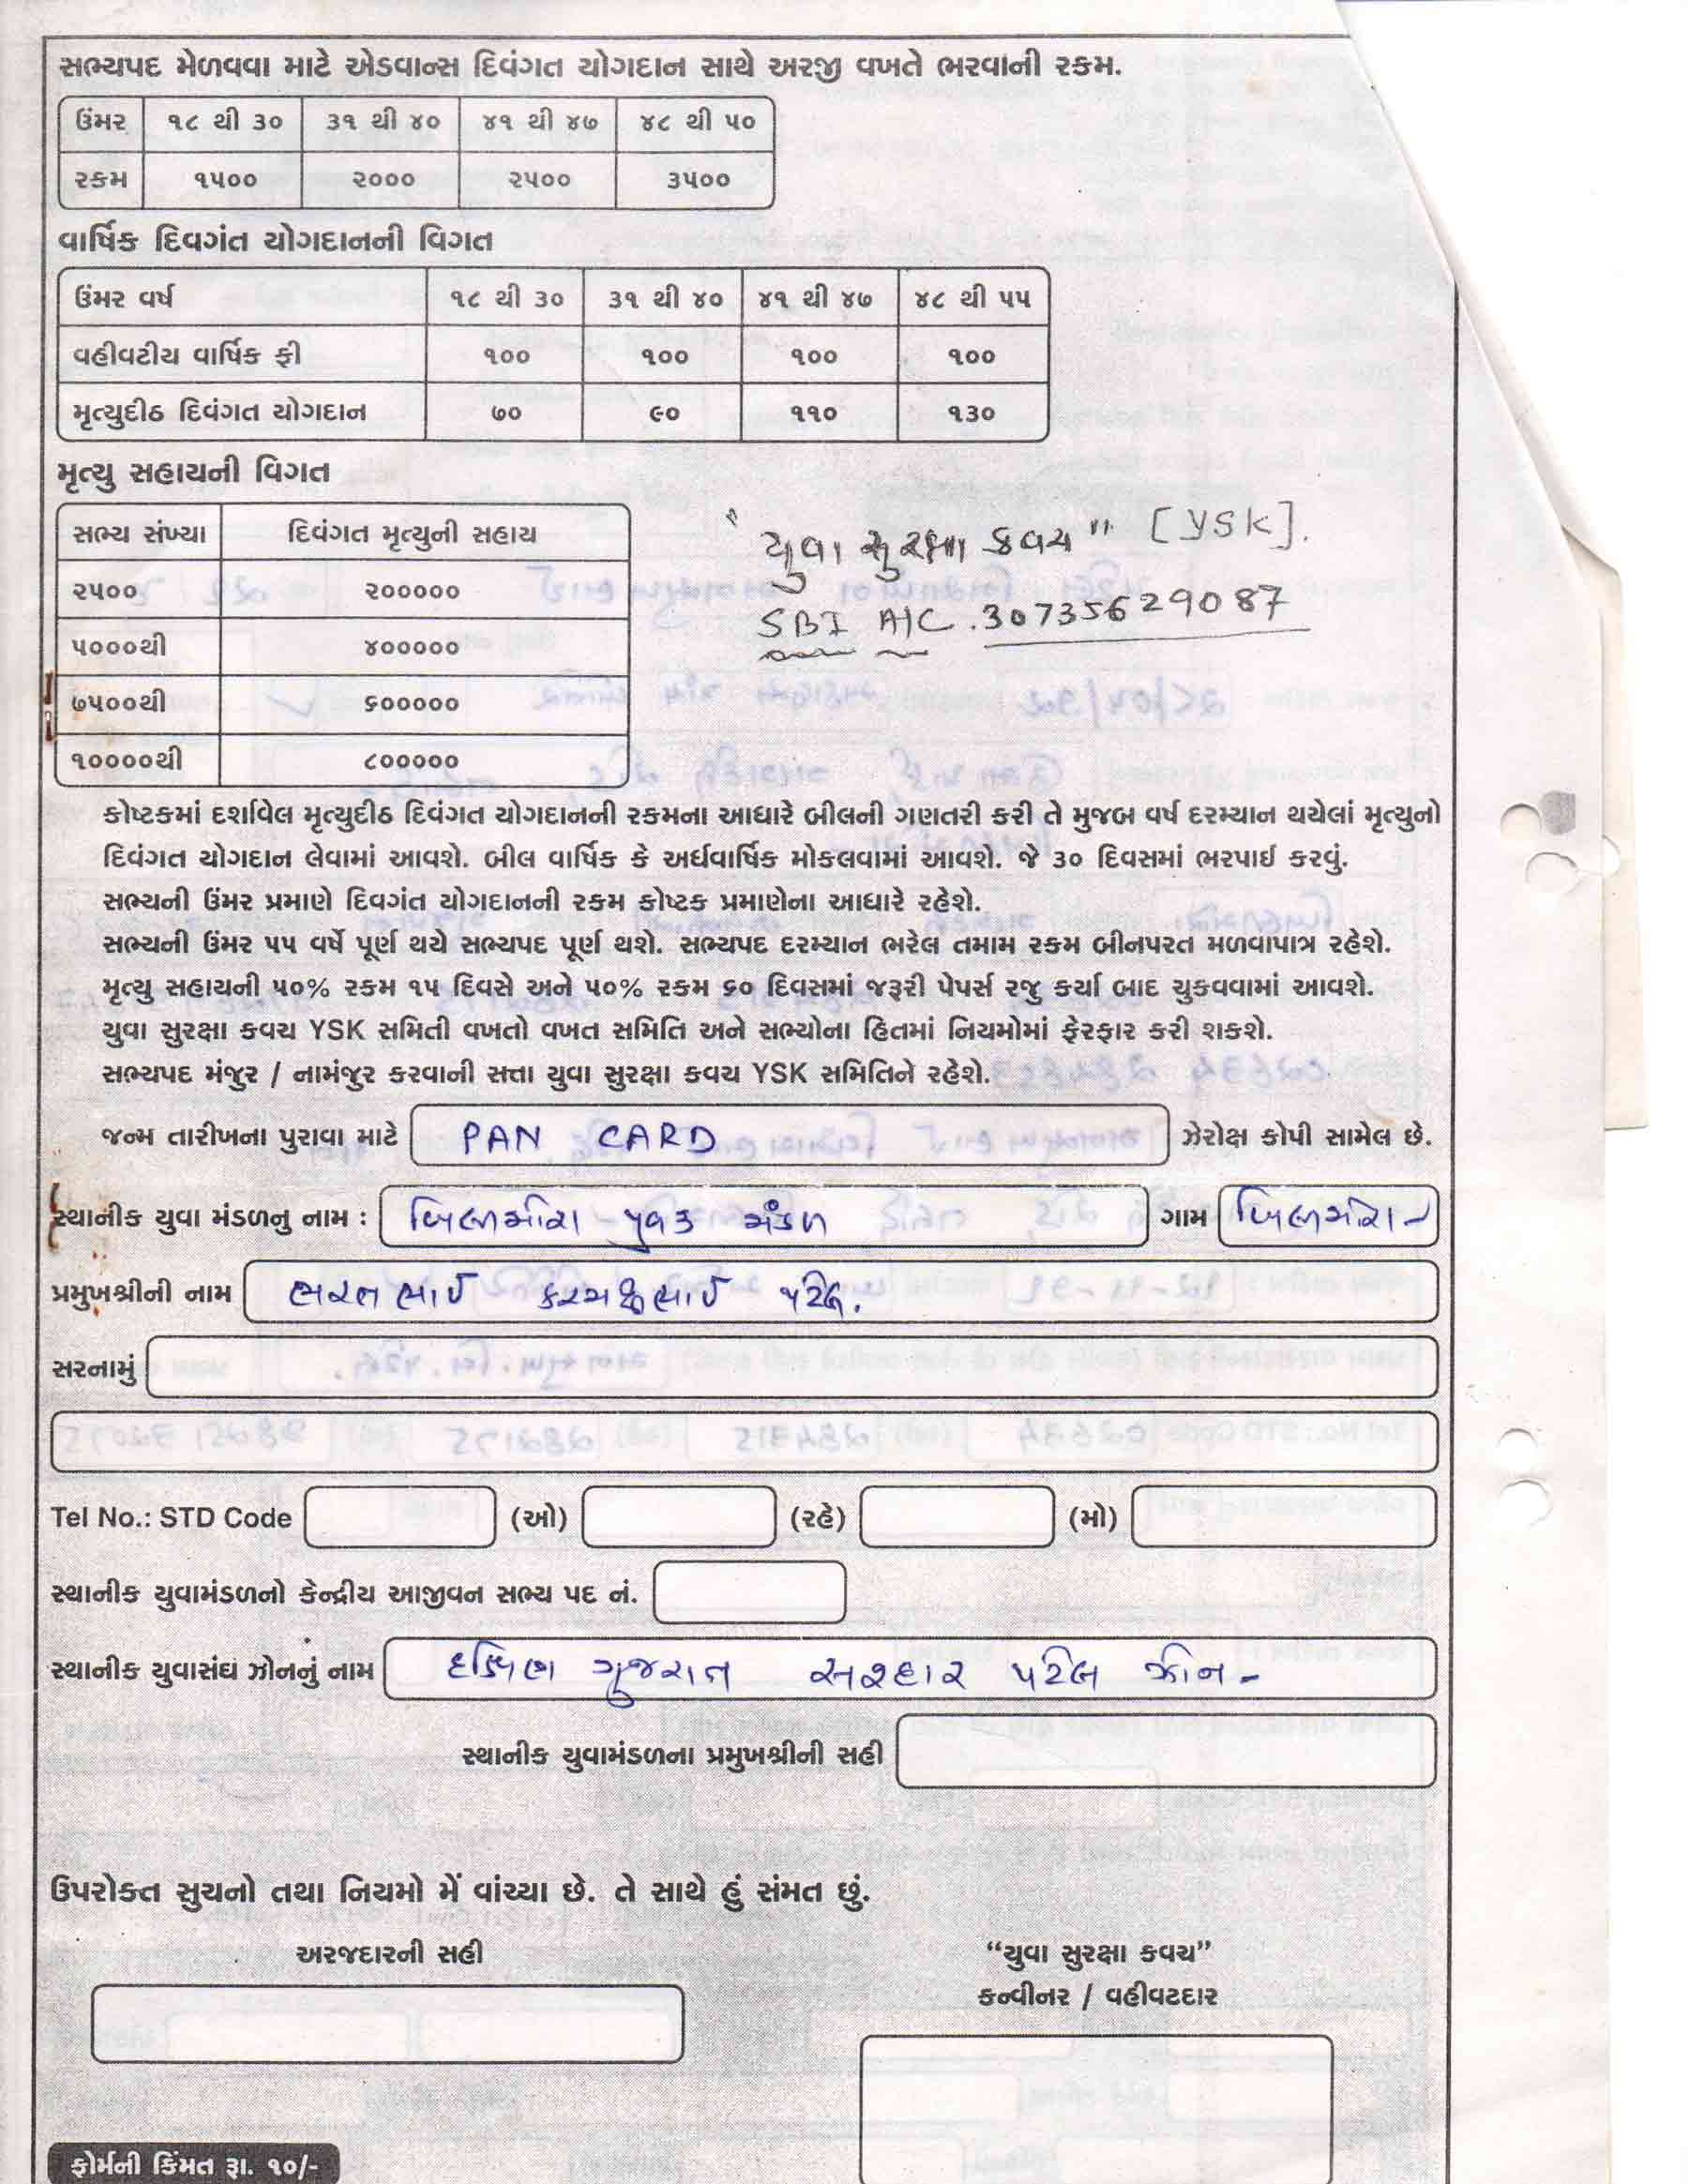 સભ્યપદ મેળવવા માટે એડવાન્સ દિવંગત યોગદાન સાથે અરજી વખતે ભરવાની રકમ.
ઉંમર ૧૮ થી ૩૦ ૩૧ થી ૪૦ ૪૧ થી ૪૭ ૪૮ થી ૫૦
રકમ ૧૫૦૦ ૨૦૦૦ ૨૫૦૦ ૩૫૦૦
વાર્ષિક દિવગંત યોગદાનની વિગત
ઉંમર વર્ષ ૧૮ થી ૩૦ ૩૧ થી ૪૦ ૪૧ થી ૪૭ ૪૮ થી ૫૫
વહીવટીય વાર્ષિક ફી ૧૦૦ ૧૦૦ ૧૦૦ ૧૦૦
મૃત્યુદીઠ દિવંગત યોગદાન ૭૦ ૯૦ ૧૧૦ ૧૩૦
મૃત્યુ સહાયની વિગત
સભ્ય સંખ્યા દિવંગત મૃત્યુની સહાય
૨૫૦૦ ૨૦૦૦૦૦
૫૦૦૦થી ૪૦૦૦૦૦
૭૫૦૦થી ૬૦૦૦૦૦
૧૦૦૦૦થી ૮૦૦૦૦૦
"યુવા સુરક્ષા કવચ" [YSK].
SBI A/C. 30735629087
કોષ્ટકમાં દર્શાવેલ મૃત્યુદીઠ દિવંગત યોગદાનની રકમના આધારે બીલની ગણતરી કરી તે મુજબ વર્ષ દરમ્યાન થયેલાં મૃત્યુનો
દિવંગત યોગદાન લેવામાં આવશે. બીલ વાર્ષિક કે અર્ધવાર્ષિક મોકલવામાં આવશે. જે ૩૦ દિવસમાં ભરપાઈ કરવું.
સભ્યની ઉંમર પ્રમાણે દિવગંત યોગદાનની રકમ કોષ્ટક પ્રમાણેના આધારે રહેશે.
સભ્યની ઉંમર ૫૫ વર્ષે પૂર્ણ થયે સભ્યપદ પૂર્ણ થશે. સભ્યપદ દરમ્યાન ભરેલ તમામ રકમ બીનપરત મળવાપાત્ર રહેશે.
મૃત્યુ સહાયની ૫૦% રકમ ૧૫ દિવસે અને ૫૦% રકમ ૬૦ દિવસમાં જરૂરી પેપર્સ રજુ કર્યા બાદ ચુકવવામાં આવશે.
યુવા સુરક્ષા કવચ YSK સમિતી વખતો વખત સમિતિ અને સભ્યોના હિતમાં નિયમોમાં ફેરફાર કરી શકશે.
સભ્યપદ મંજુર / નામંજુર કરવાની સત્તા યુવા સુરક્ષા કવચ YSK સમિતિને રહેશે.
જન્મ તારીખના પુરાવા માટે PAN CARD ઝેરોક્ષ કોપી સામેલ છે.
સ્થાનીક યુવા મંડળનુ નામ : બિલીમોરા યુવક મંડળ ગામ બિલીમોરા-
પ્રમુખશ્રીની નામ ભરતભાઈ કરમશીભાઈ પટેલ.
સરનામું
Tel No.: STD Code (ઓ) (રહે) (મો)
સ્થાનીક યુવામંડળનો કેન્દ્રીય આજીવન સભ્ય પદ નં.
સ્થાનીક યુવાસંઘ ઝોનનું નામ દક્ષિણ ગુજરાત સરદાર પટેલ ઝોન-
સ્થાનીક યુવામંડળના પ્રમુખશ્રીની સહી
ઉપરોક્ત સુચનો તથા નિયમો મેં વાંચ્યા છે. તે સાથે હું સંમત છું.
અરજદારની સહી
"યુવા સુરક્ષા કવચ"
કન્વીનર / વહીવટદાર
ફોર્મની કિંમત રૂા. ૧૦/-